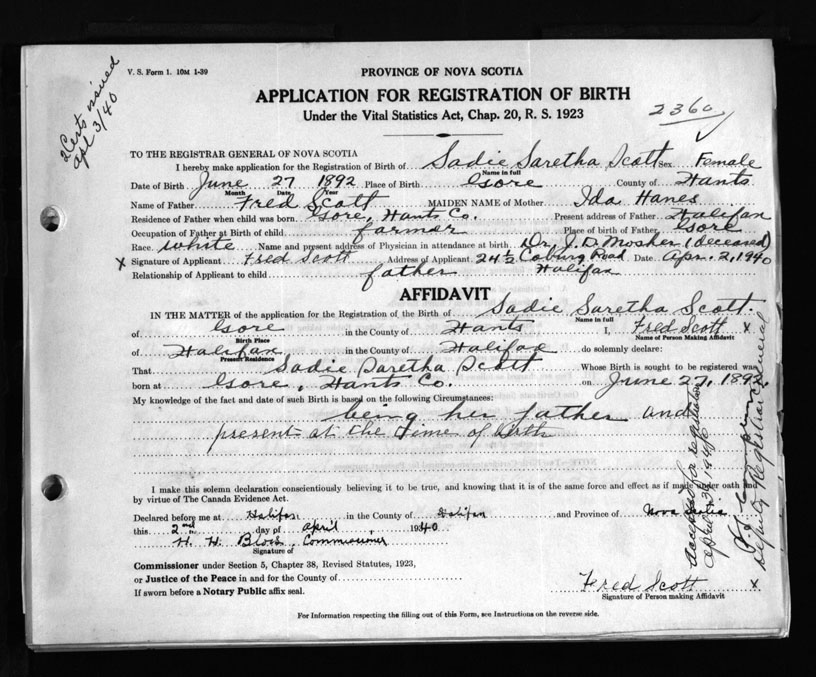 V. S. Form 1. 10M 1-39
2 Certs issued
apl 3/40
PROVINCE OF NOVA SCOTIA
APPLICATION FOR REGISTRATION OF BIRTH
2360
Under the Vital Statistics Act, Chap. 20, R. S. 1923
TO THE REGISTRAR GENERAL OF NOVA SCOTIA
I hereby make application for the Registration of Birth of Sadie Saretha Scott Sex Female
Name in full
Date of Birth June 27 1892 Place of Birth Gore County of Hants
Month Date Year
Name of Father Fred Scott MAIDEN NAME of Mother Ida Hanes
Residence of Father when child was born Gore, Hants Co. Present address of Father Halifax
Occupation of Father at Birth of child farmer Place of birth of Father Gore
Race white Name and present address of Physician in attendance at birth Dr. J. D. Mosher (deceased)
x Signature of Applicant Fred Scott Address of Applicant 24½ Coburg Road Date Apr. 2, 1940
Relationship of Applicant to child father Halifax
AFFIDAVIT
IN THE MATTER of the application for the Registration of the Birth of Sadie Saretha Scott.
Name in full
of Gore in the County of Hants I, Fred Scott x
Birth Place Name of Person Making Affidavit
of Halifax in the County of Halifax do solemnly declare:
Present Residence
That Sadie Saretha Scott Whose Birth is sought to be registered was
born at Gore, Hants Co. on June 27, 1892
My knowledge of the fact and date of such Birth is based on the following Circumstances:
being her father and
present at the time of birth
I make this solemn declaration conscientiously believing it to be true, and knowing that it is of the same force and effect as if made under oath and
by virtue of The Canada Evidence Act.
Declared before me at Halifax in the County of Halifax and Province of Nova Scotia
this 2nd day of April 1940
H. H. Commissioner
Signature of
Commissioner under Section 5, Chapter 38, Revised Statutes, 1923,
or Justice of the Peace in and for the County of
If sworn before a Notary Public affix seal.
Fred Scott x
Signature of Person making Affidavit
For Information respecting the filling out of this Form, see Instructions on the reverse side.
accepted for registration
april 3rd 1940
Deputy Registrar General